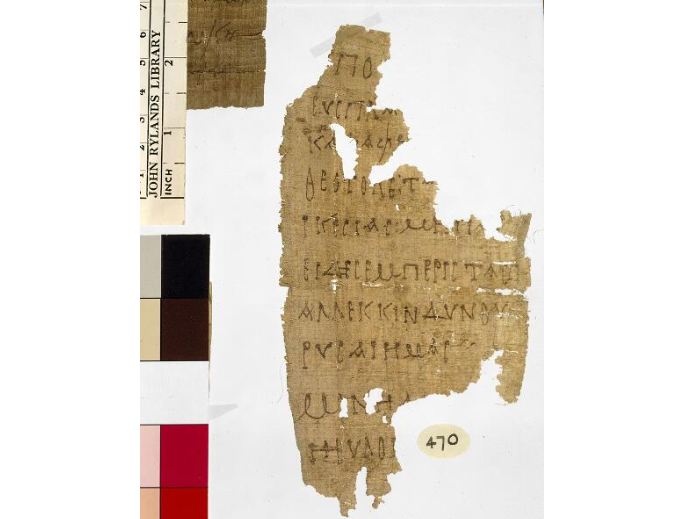 JOHN RYLANDS LIBRARY
INCH
1
2
1 2 3 4 5 6 7
ΠΟ
ΕΥCΠΛ
ΚΑΤΑΦΕ
ΘΕΟΤΟΚΕΤ
ΙΚΕCΙΑCΜΗΠΑ
ΕΙΔΗCΕΜΠΕΡΙCΤΑC
ΑΛΛΕΚΚΙΝΔΥΝΟΥ
ΡΥCΑΙΗΜΑC
ΜΟΝΗ
ΗΕΥΛΟΓ
470